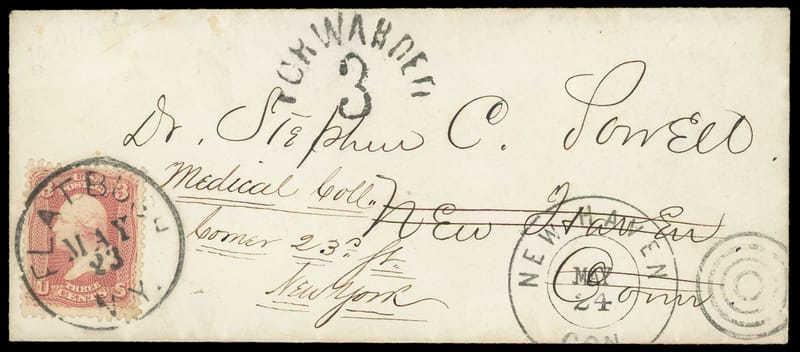 FORWARDED
3
Dr. Stephen C. Powell.
Medical Coll.
New Haven
Corner 23d. St.
Conn.
New York
FLATBUSH
MAY
23
N.Y.
NEW-HAVEN
MAY
24
CON.
3 3
U S
CENTS